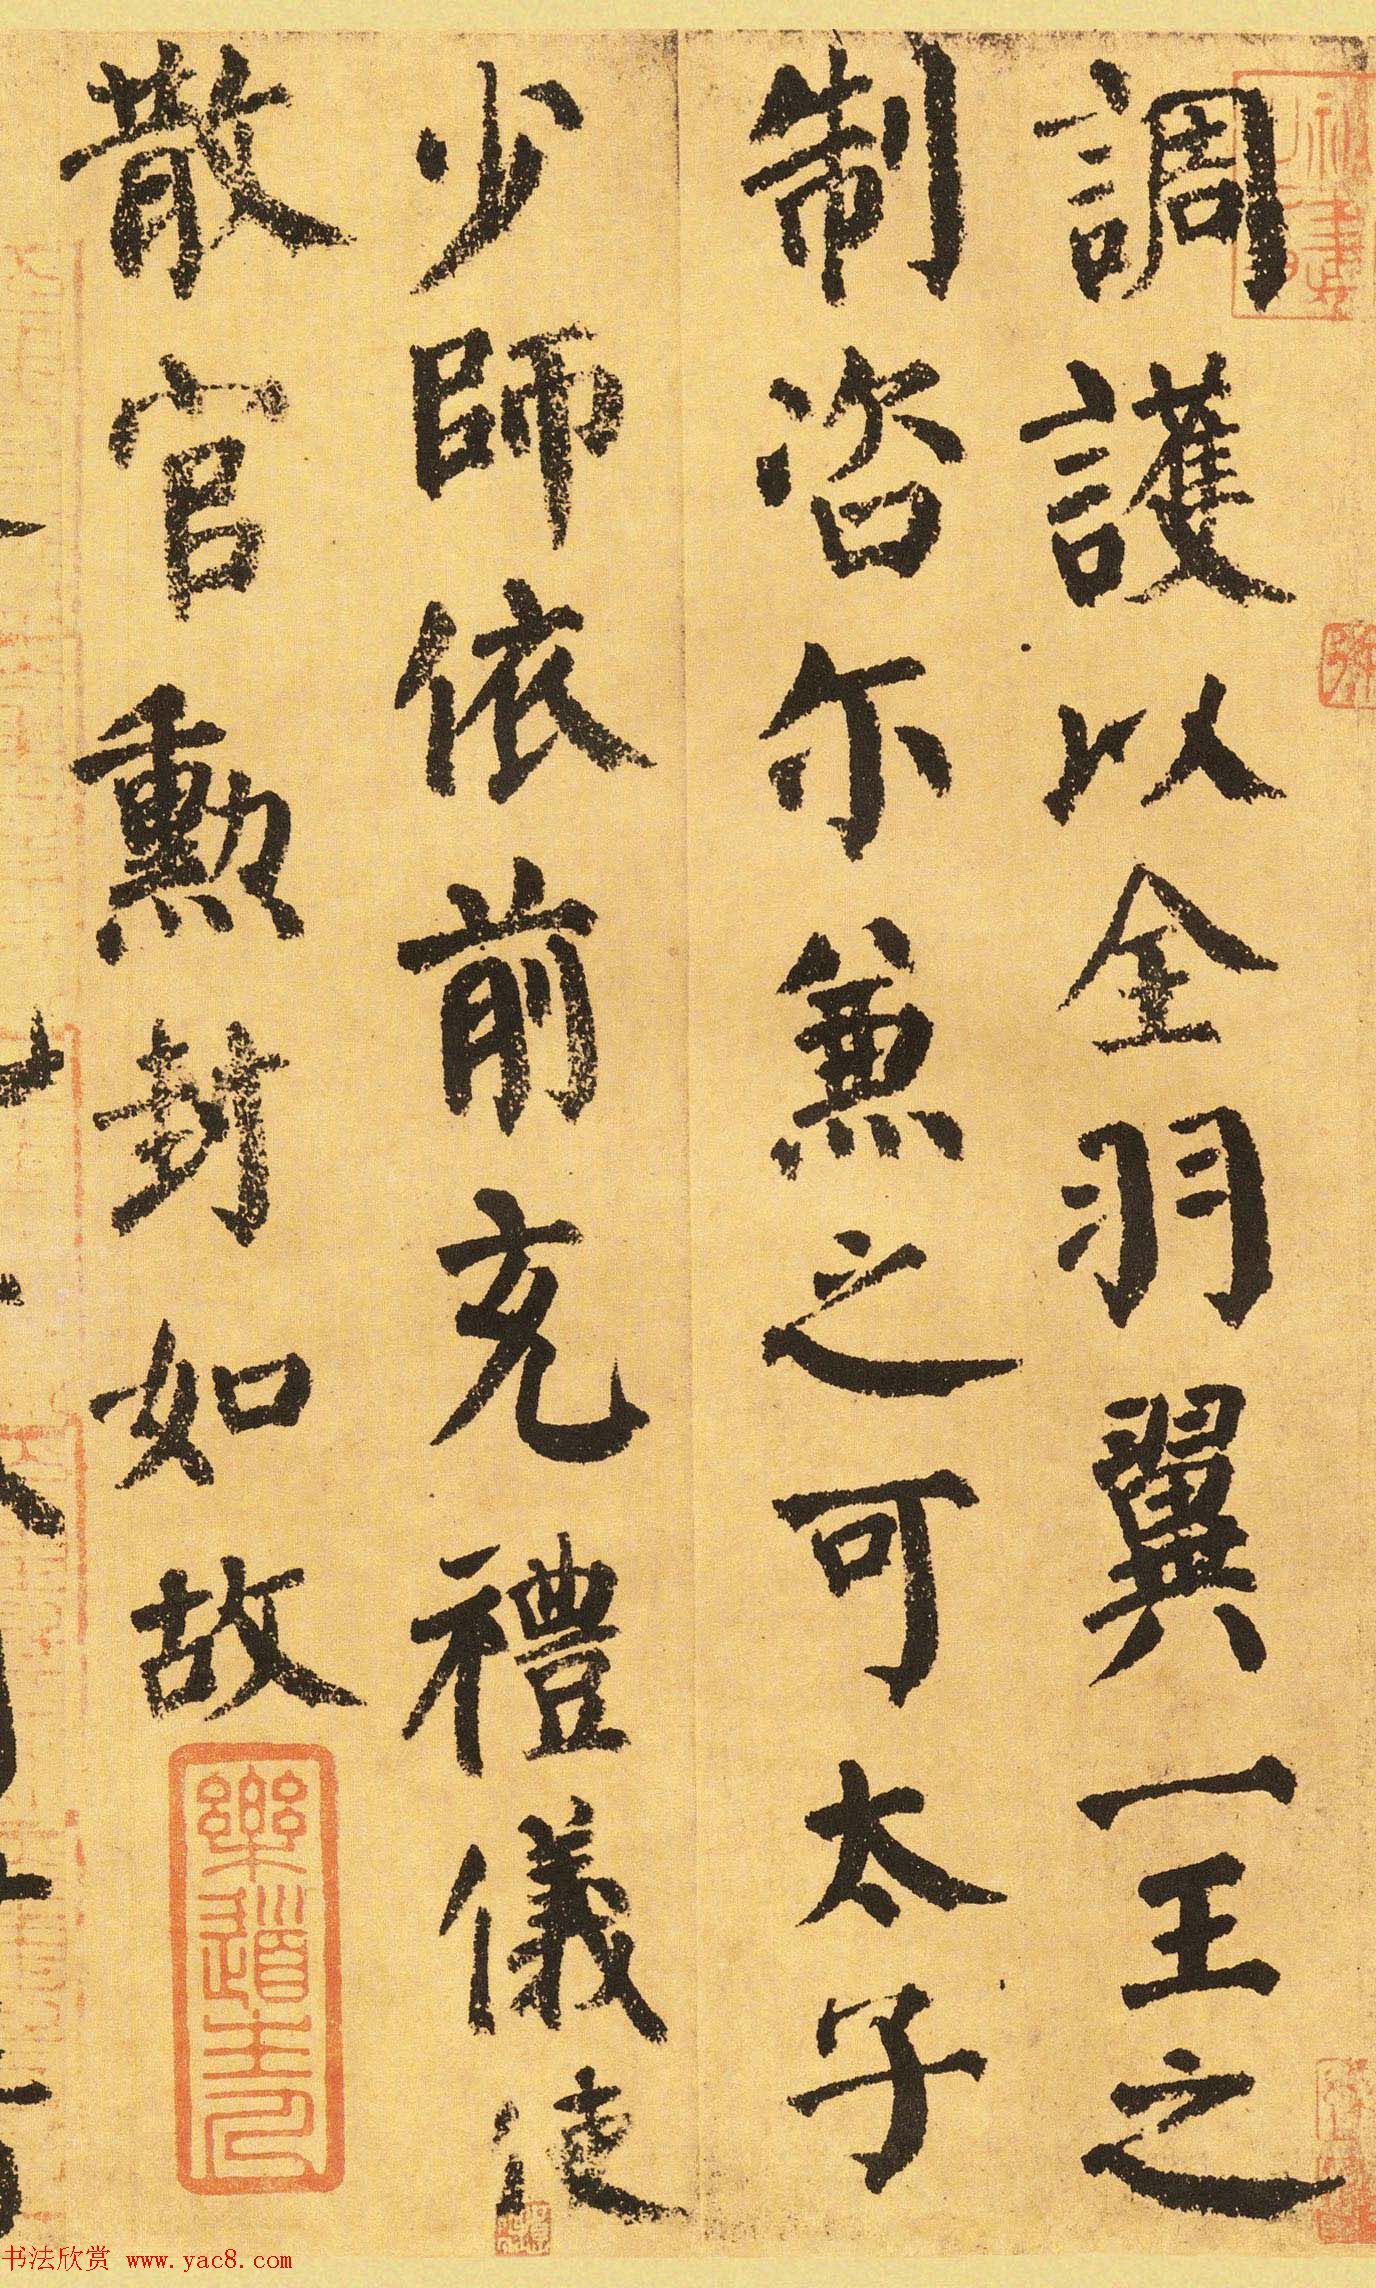 調護以全羽翼一王之
制咨尓兼之可太子
少師依前充禮儀使
散官勲封如故
樂道主人
书法欣赏 www.yac8.com